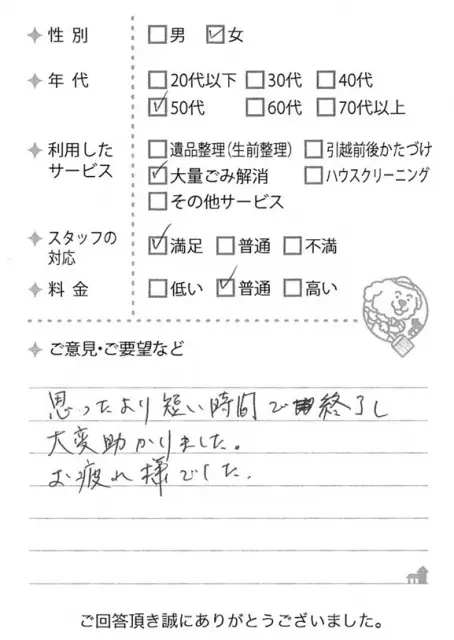 性別 □男 ☑女
年代 □20代以下 □30代 □40代
☑50代 □60代 □70代以上
利用した □遺品整理(生前整理) □引越前後かたづけ
サービス ☑大量ごみ解消 □ハウスクリーニング
□その他サービス
スタッフの ☑満足 □普通 □不満
対応
料金 □低い ☑普通 □高い
ご意見・ご要望など
思ったより短い時間で終了し
大変助かりました。
お疲れ様でした。
ご回答頂き誠にありがとうございました。